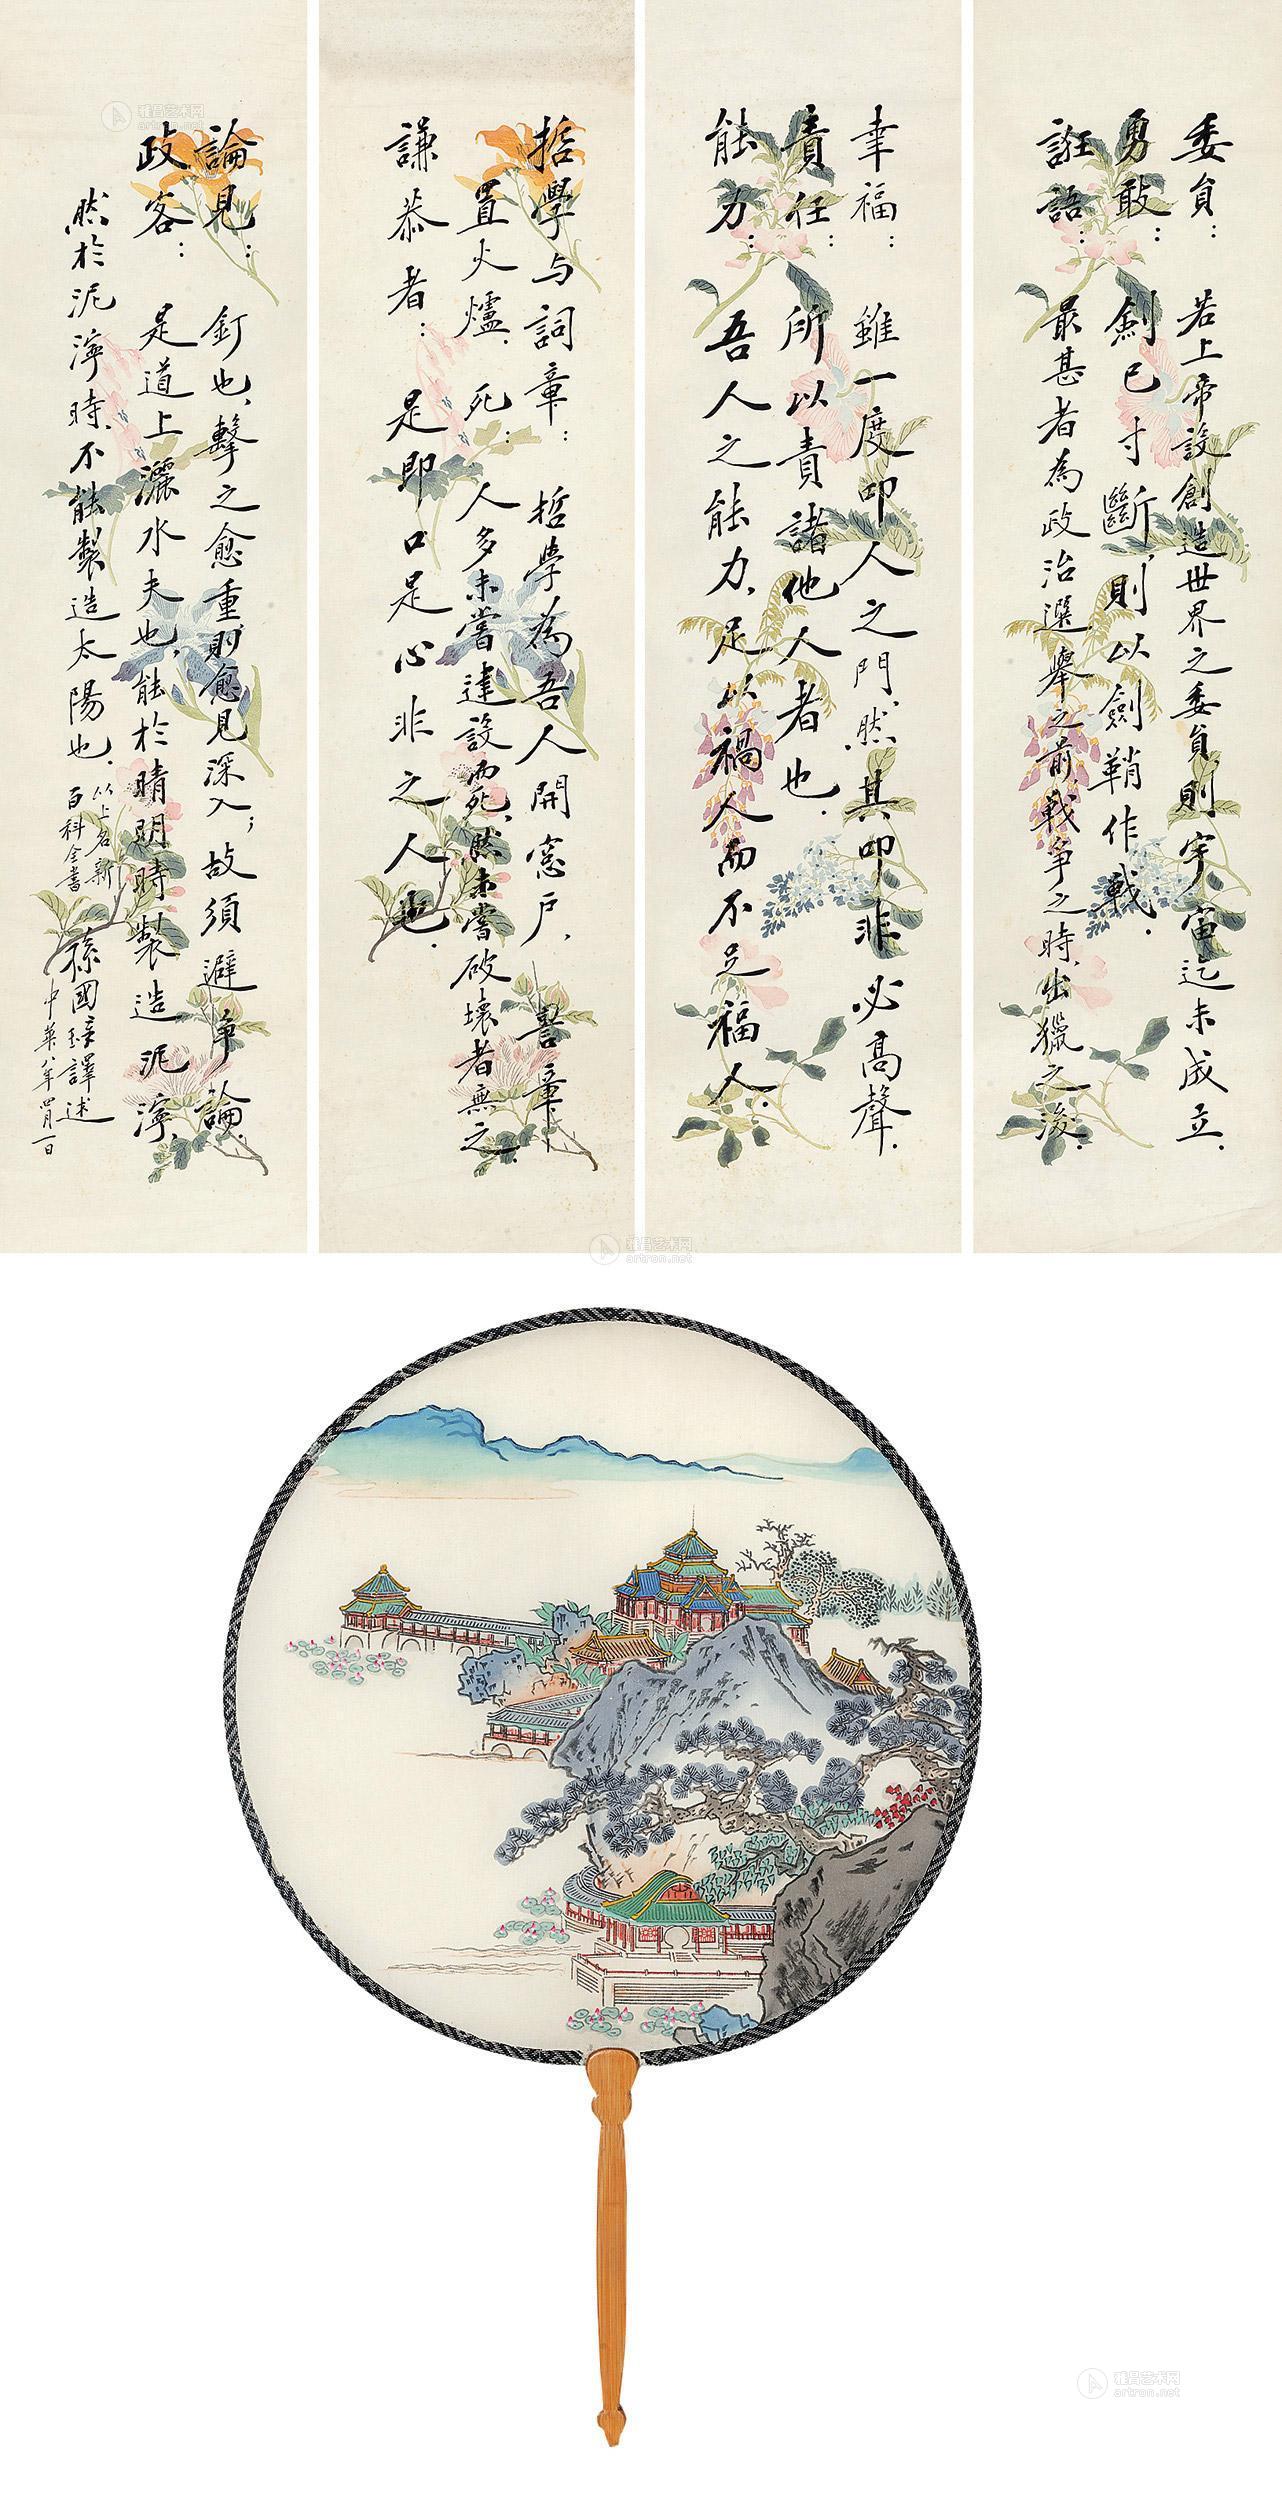 委員：若上帝設創造世界之委員，則宇宙迄未成立．
勇敢：劍已寸斷，則以劍鞘作戰．
誑語：最甚者為政治選舉之前，戰爭之時，出獵之後．
幸福：雖一度叩人之門，然其叩非必高聲．
責任：所以責諸他人者也．
能力：吾人之能力，足以禍人而不足福人．
哲學与詞章：哲學為吾人開窓戶，詞章
置火爐．死：人多未嘗建設而死，然未嘗破壞者無之．
謙恭者：是即口是心非之人也．
論見：釘也，擊之愈重，則愈見深入；故須避爭論．
政客：是道上灑水夫也，能於晴明時製造泥濘，
然於泥濘時，不能製造太陽也．
以上名新
百科全書
孫國璋譯述
中華八年四月一日
雅昌艺术网
artron.net
雅昌艺术网
artron.net
雅昌艺术网
artron.net